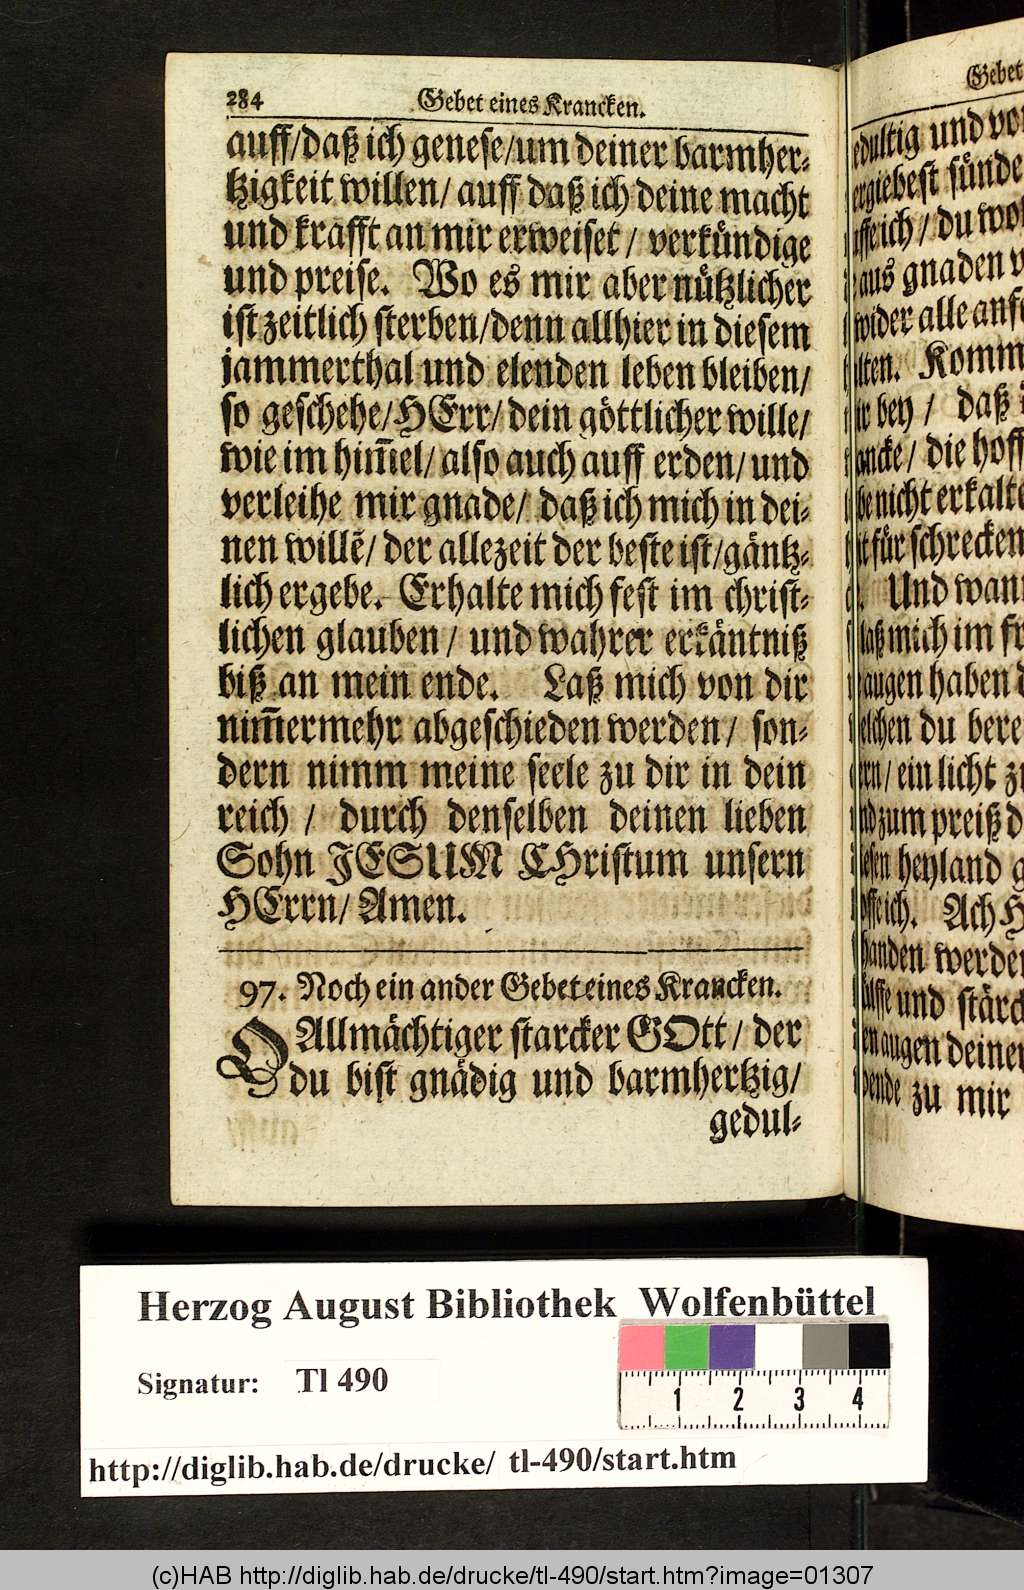 284 Gebet eines Krancken.
auff/daß ich genese/um deiner barmher-
tzigkeit willen/ auff daß ich deine macht
und krafft an mir erweiset / verkündige
und preise. Wo es mir aber nützlicher
ist zeitlich sterben/denn allhier in diesem
jammerthal und elenden leben bleiben/
so geschehe/HErr/ dein göttlicher wille/
wie im him̄el/ also auch auff erden/ und
verleihe mir gnade/ daß ich mich in dei-
nen willē/ der allezeit der beste ist/gäntz-
lich ergebe. Erhalte mich fest im christ-
lichen glauben/ und wahrer erkäntniß
biß an mein ende. Laß mich von dir
nim̄ermehr abgeschieden werden/ son-
dern nimm meine seele zu dir in dein
reich / durch denselben deinen lieben
Sohn JESUM CHristum unsern
HErrn/ Amen.
97. Noch ein ander Gebet eines Krancken.
O Allmächtiger starcker GOtt/ der
du bist gnädig und barmhertzig/
gedul-
Gebet
und
sünde
ich/ du
aus gnaden
wider alle
Komm
bey / daß
die
nicht
für schrecken
Und
mich im
augen haben
du
ein licht
zum preiß
heyland
ich. Ach
werden
und
augen
zu mir
Herzog August Bibliothek Wolfenbüttel
Signatur: Tl 490
1 2 3 4
http://diglib.hab.de/drucke/ tl-490/start.htm
(c)HAB http://diglib.hab.de/drucke/tl-490/start.htm?image=01307